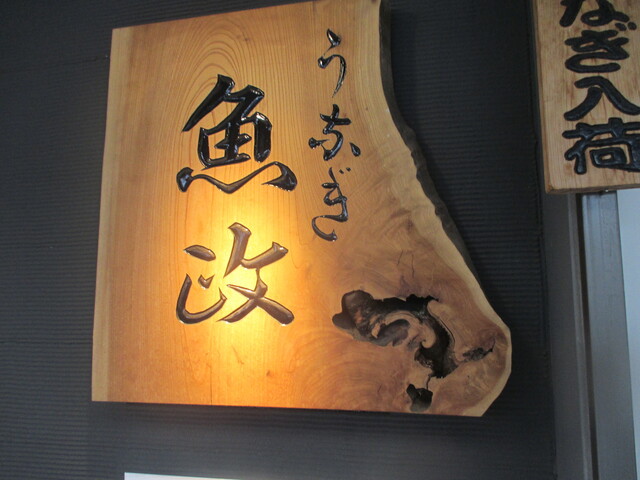 なぎ入荷
うなぎ
魚政